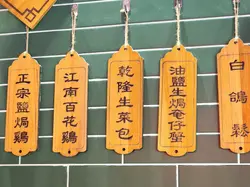 正宗鹽焗鷄
江南百花鷄
乾隆生菜包
油鹽生焗奄仔蟹
白鴿